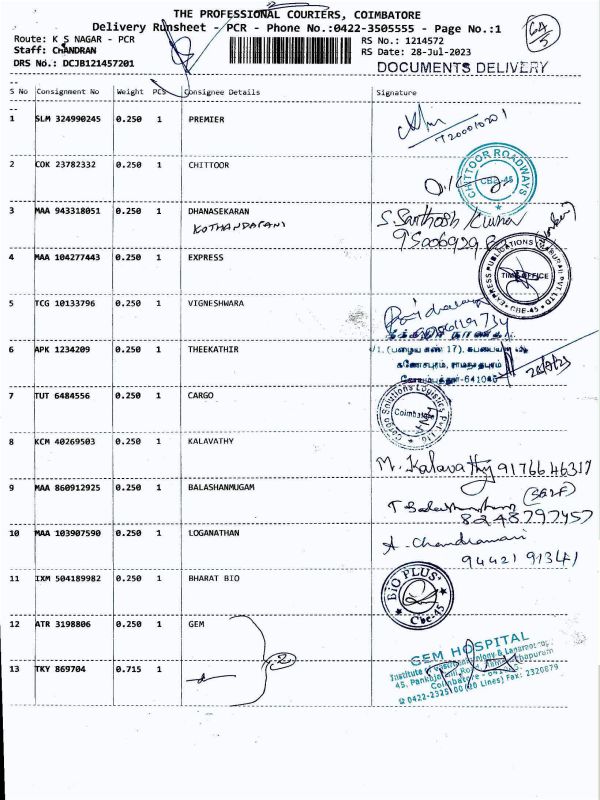 THE PROFESSIONAL COURIERS, COIMBATORE
Delivery Runsheet - PCR - Phone No.:0422-3505555 - Page No.:1
Route: K S NAGAR - PCR
Staff: CHANDRAN
DRS No.: DCJB121457201
RS No.: 1214572
RS Date: 28-Jul-2023
DOCUMENTS DELIVERY
S No Consignment No Weight PCS Consignee Details Signature
1 SLM 324990245 0.250 1 PREMIER
2 COK 23782332 0.250 1 CHITTOOR
CHITTOOR ROADWAYS
CBE-45
3 MAA 943318051 0.250 1 DHANASEKARAN
KOTHANDAPANI
S. Santhosh Kumar
4 MAA 104277443 0.250 1 EXPRESS
TIME OFFICE
CBE-45
5 TCG 10133796 0.250 1 VIGNESHWARA
6 APK 1234209 0.250 1 THEEKATHIR
7 TUT 6484556 0.250 1 CARGO
Cargo Solutions Logistics Pvt Ltd
Coimbatore
8 KCM 40269503 0.250 1 KALAVATHY
M. Kalavathy 9176646317
9 MAA 860912925 0.250 1 BALASHANMUGAM
8248797457
10 MAA 103907590 0.250 1 LOGANATHAN
A. Chandramani
94421 91341
11 IXM 504189982 0.250 1 BHARAT BIO
BIO PLUS
Cbe-45
12 ATR 3198806 0.250 1 GEM
GEM HOSPITAL
13 TKY 869704 0.715 1
2